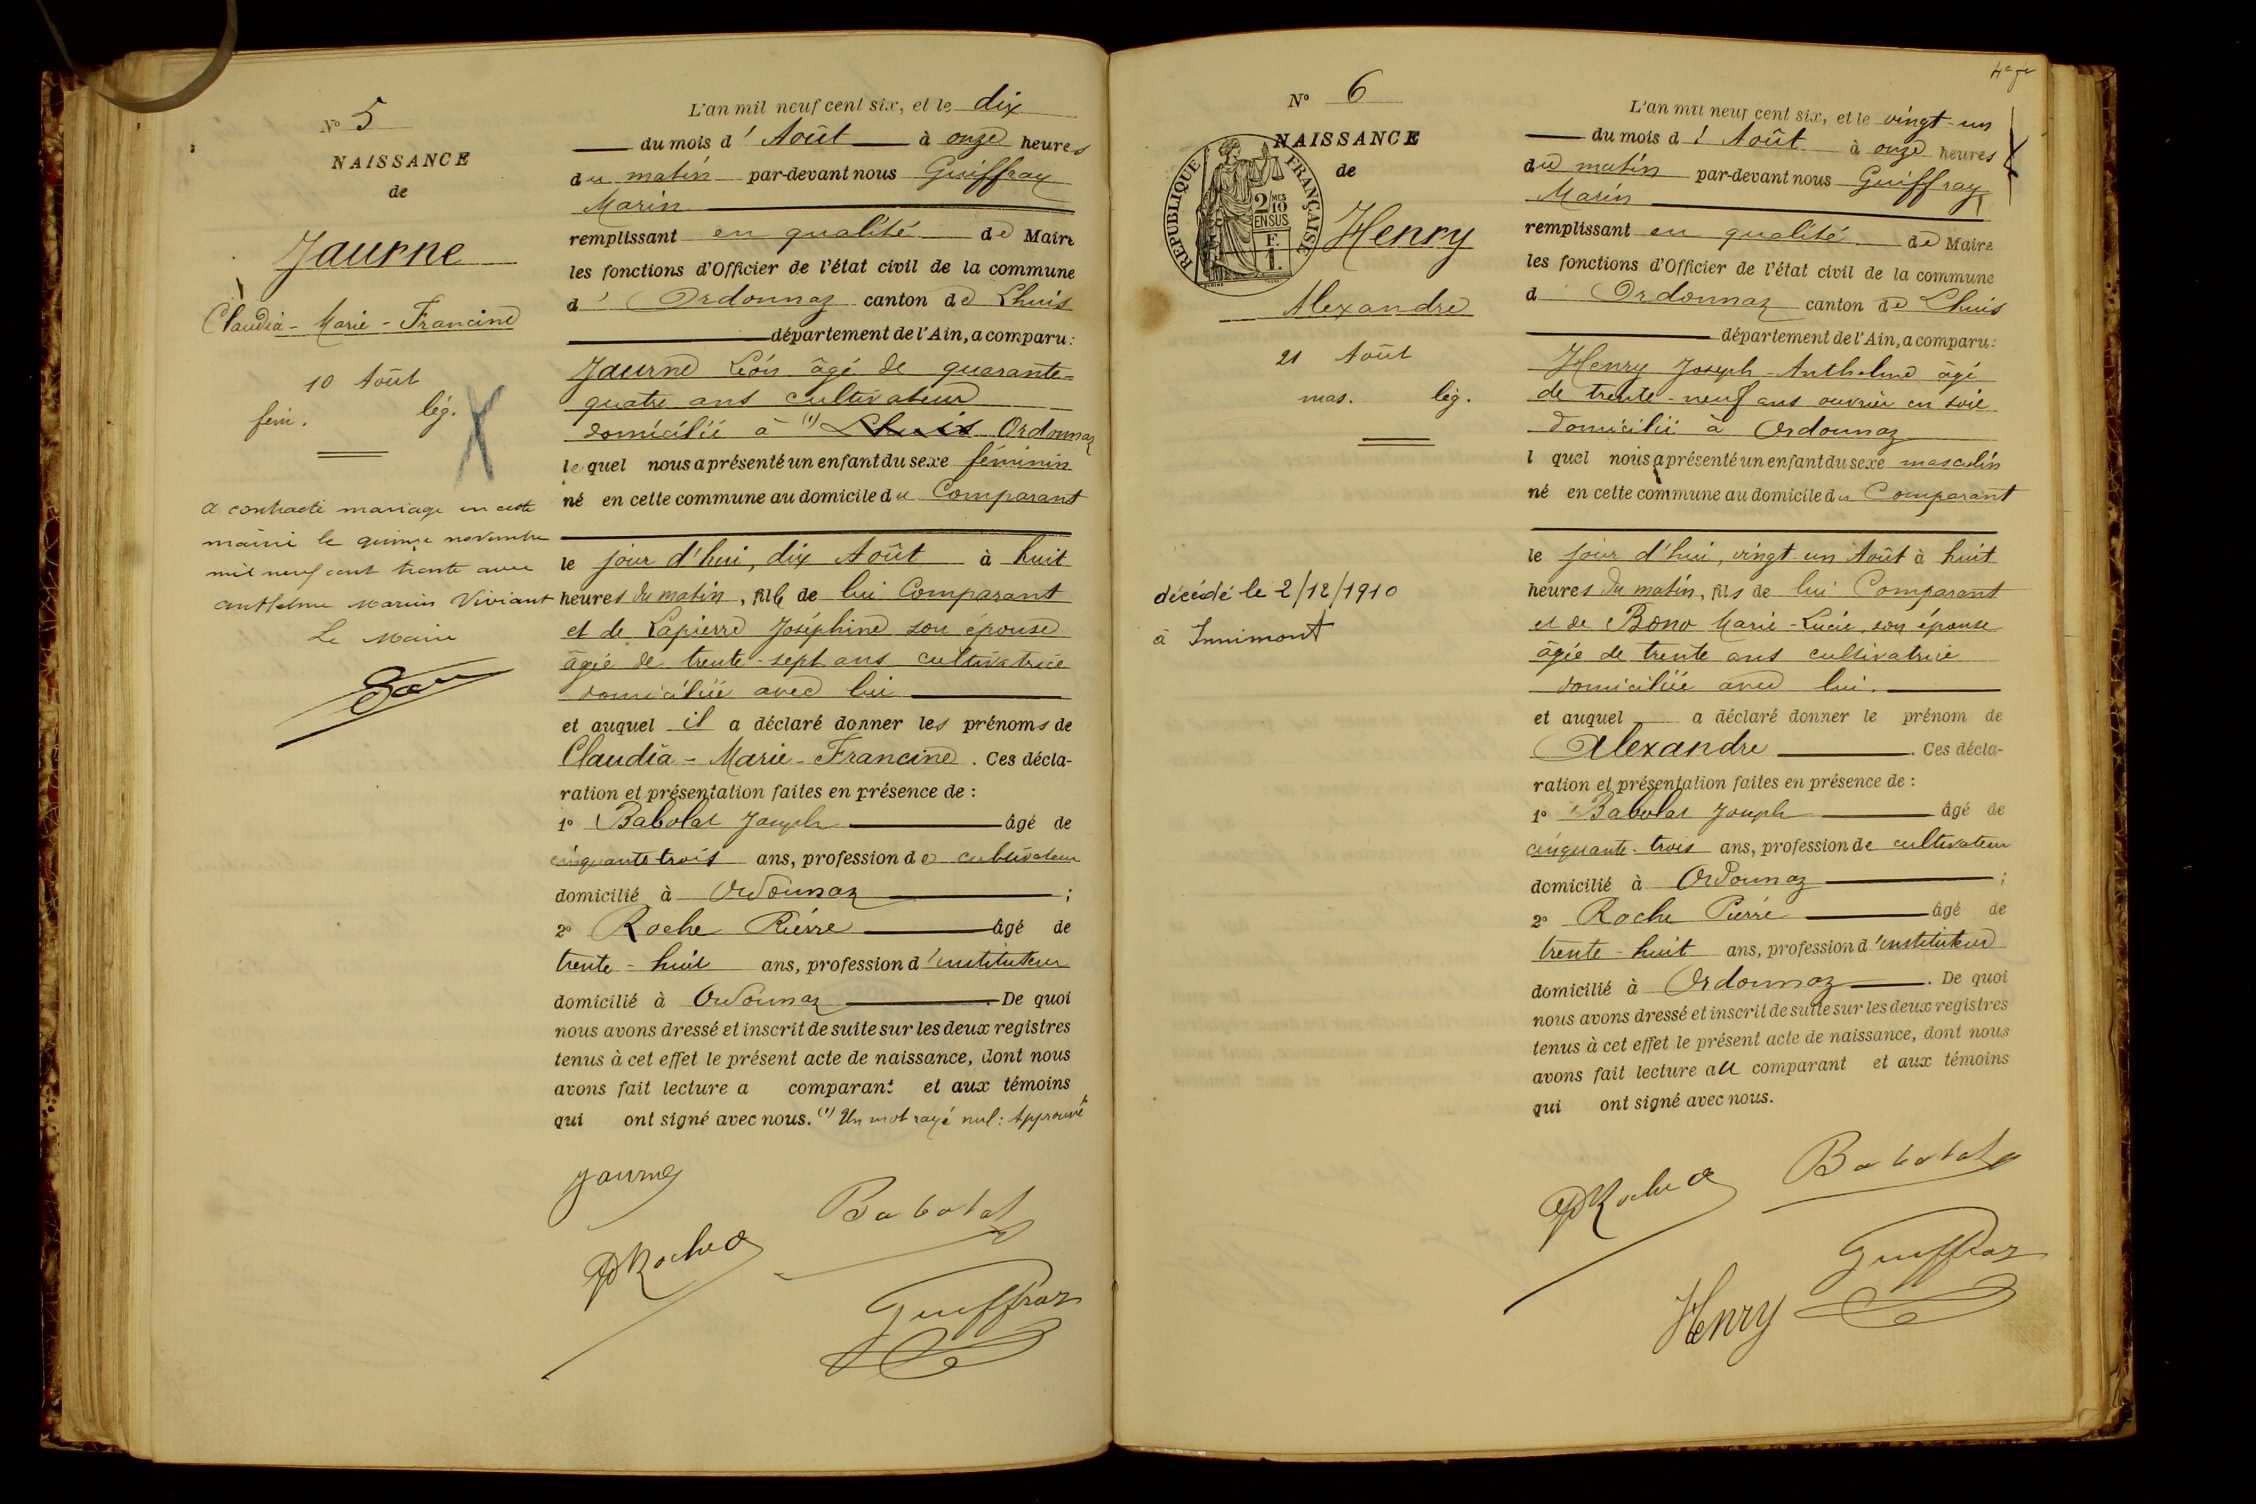 Nº 5
NAISSANCE
de
Jaurne
Claudia - Marie - Francine
10 Août
fém. lég.
a contracté mariage en cette
mairie le quinze novembre
mil neuf cent trente avec
Anthelme Marius Viviant
Le Maire
L'an mil neuf cent six, et le dix
du mois d'Août à onze heures
du matin par-devant nous Guiffray
Marin
remplissant en qualité de Maire
les fonctions d'Officier de l'état civil de la commune
d'Ordonnaz canton de Lhuis
département de l'Ain, a comparu:
Jaurne Léon âgé de quarante-
quatre ans cultivateur
domicilié à (1) Lhuis Ordonnaz
lequel nous a présenté un enfant du sexe féminin
né en cette commune au domicile du Comparant
le jour d'hui, dix Août à huit
heures du matin, fille de lui Comparant
et de Lapierre Joséphine son épouse
âgée de trente-sept ans cultivatrice
domiciliée avec lui
et auquel il a déclaré donner les prénoms de
Claudia - Marie - Francine. Ces décla-
ration et présentation faites en présence de :
1º Babolat Joseph âgé de
cinquante trois ans, profession de cultivateur
domicilié à Ordonnaz ;
2º Roche Pierre âgé de
trente-huit ans, profession d'instituteur
domicilié à Ordonnaz. De quoi
nous avons dressé et inscrit de suite sur les deux registres
tenus à cet effet le présent acte de naissance, dont nous
avons fait lecture a comparant et aux témoins
qui ont signé avec nous. (1) Un mot rayé nul : Approuvé
Jaurne
Babolat
P Roche
Guiffray
Nº 6
NAISSANCE
de
RÉPUBLIQUE FRANÇAISE
2/10 MES
EN SUS
F.
1.
Henry
Alexandre
21 Août
mas. lég.
décédé le 2/12/1910
à Innimont
L'an mil neuf cent six, et le vingt-un
du mois d'Août à onze heures
du matin par-devant nous Guiffray
Marin
remplissant en qualité de Maire
les fonctions d'Officier de l'état civil de la commune
d Ordonnaz canton de Lhuis
département de l'Ain, a comparu:
Henry Joseph-Anthelme âgé
de trente-neuf ans ouvrier en soie
domicilié à Ordonnaz
l quel nous a présenté un enfant du sexe masculin
né en cette commune au domicile du Comparant
le jour d'hui, vingt-un Août à huit
heures du matin, fils de lui Comparant
et de Bono Marie-Lucie, son épouse
âgée de trente ans cultivatrice
domiciliée avec lui.
et auquel a déclaré donner le prénom de
Alexandre. Ces décla-
ration et présentation faites en présence de :
1º Babolat Joseph âgé de
cinquante-trois ans, profession de cultivateur
domicilié à Ordonnaz ;
2º Roche Pierre âgé de
trente-huit ans, profession d'instituteur
domicilié à Ordonnaz. De quoi
nous avons dressé et inscrit de suite sur les deux registres
tenus à cet effet le présent acte de naissance, dont nous
avons fait lecture au comparant et aux témoins
qui ont signé avec nous.
Babolat
P Roche
Guiffray
Henry